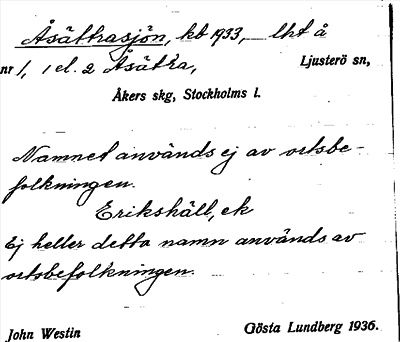 Åsättrasjön, kb 1933, lht å
nr 1, 1 el. 2 Åsätra, Ljusterö sn,
Åkers skg, Stockholms l.
Namnet används ej av ortsbe-
folkningen.
Erikshäll, ek
Ej heller detta namn används av
ortsbefolkningen.
John Westin Gösta Lundberg 1936.